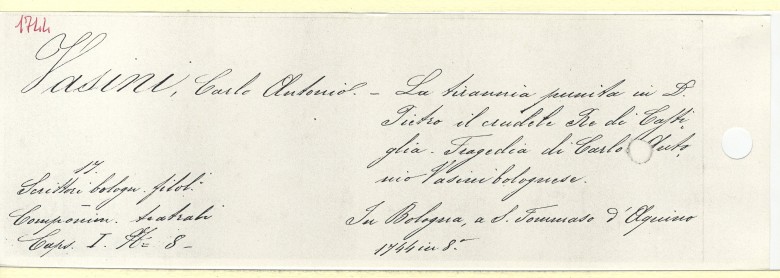 1744
Vasini, Carlo Antonio. - La tirannia punita in D.
Pietro il crudele Re di Casti
glia. Tragedia di Carlo Anto,
nio Vasini bolognese.
17.
Scrittori bologn. filol.
Componim. teatrali
Caps. I. Nº 8 -
In Bologna, a S. Tommaso d'Aquino
1744 in 8.º